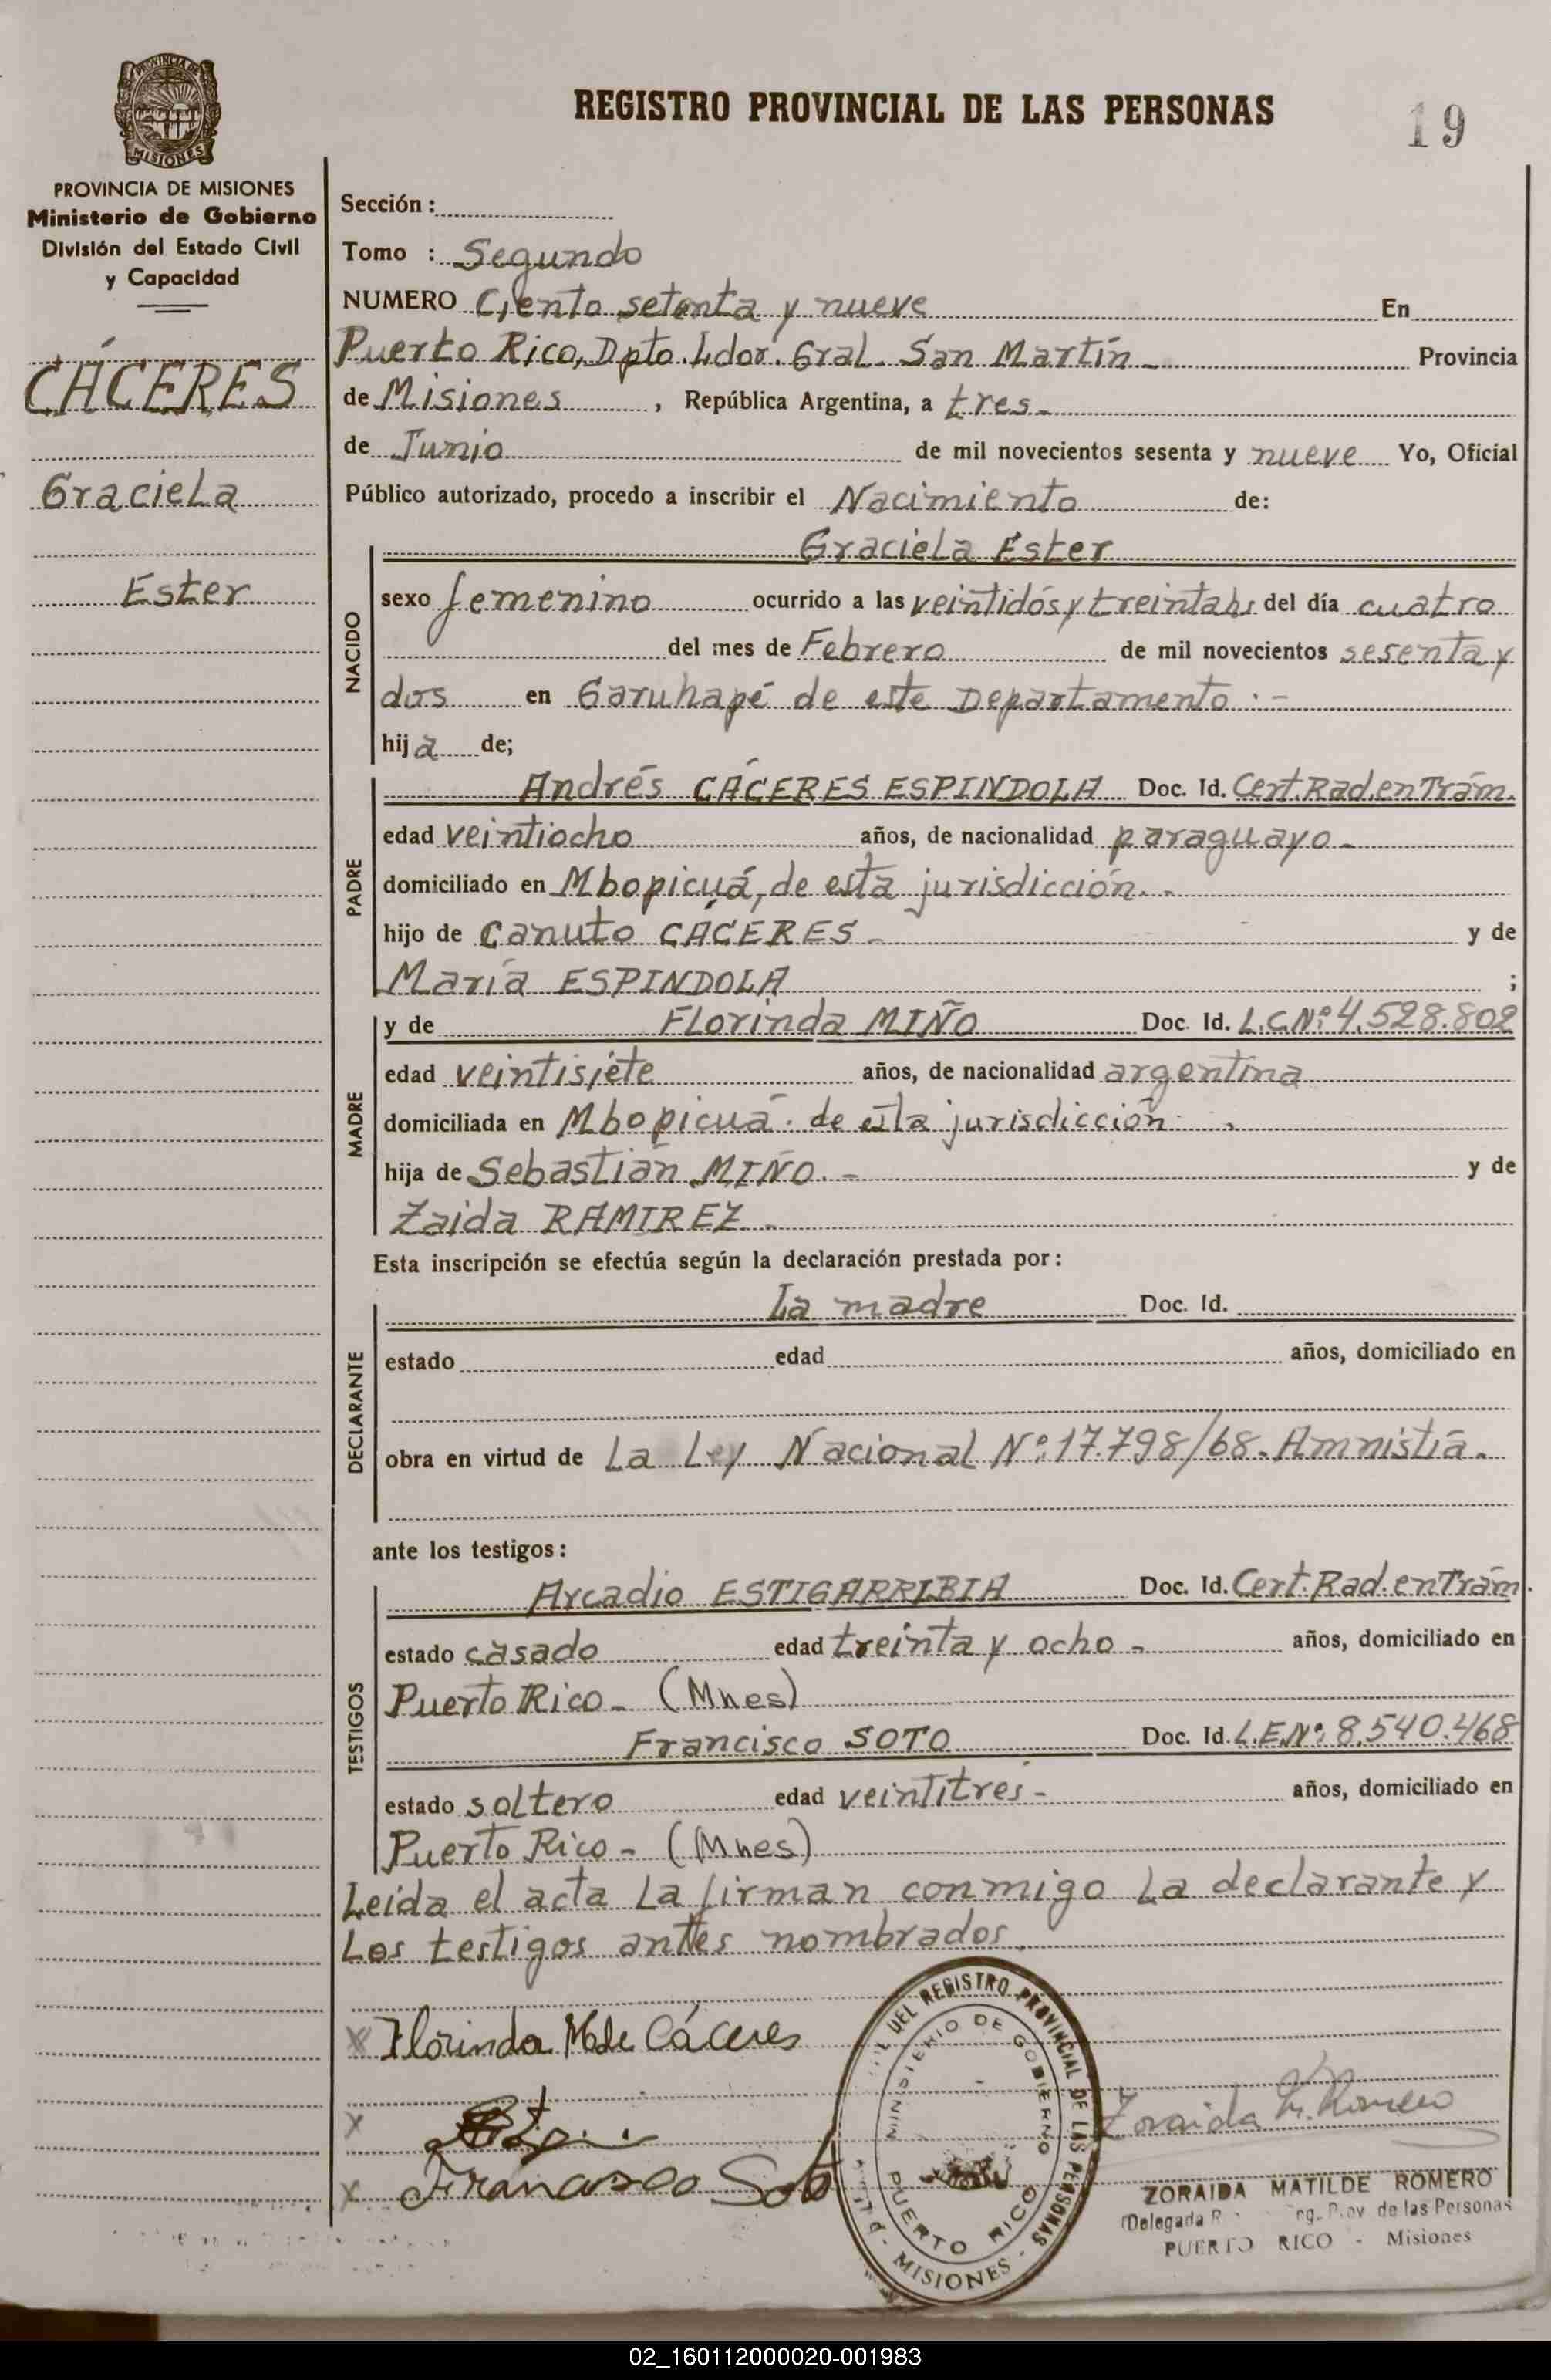 REGISTRO PROVINCIAL DE LAS PERSONAS
19
PROVINCIA DE MISIONES
Ministerio de Gobierno
División del Estado Civil
y Capacidad
CÁCERES
Graciela
Ester
Sección :
Tomo : Segundo
NUMERO Ciento setenta y nueve En
Puerto Rico, Dpto. Ldor. Gral. San Martín - Provincia
de Misiones , República Argentina, a tres -
de Junio de mil novecientos sesenta y nueve Yo, Oficial
Público autorizado, procedo a inscribir el Nacimiento de:
NACIDO
Graciela Ester
sexo femenino ocurrido a las veintidós y treinta hs del día cuatro
del mes de Febrero de mil novecientos sesenta y
dos en Garuhapé de este Departamento . -
hija de;
PADRE
Andrés CÁCERES ESPINDOLA Doc. Id. Cert. Rad. en Trám.
edad veintiocho años, de nacionalidad paraguayo -
domiciliado en Mbopicuá, de esta jurisdicción. -
hijo de Canuto CÁCERES - y de
María ESPINDOLA ;
MADRE
y de Florinda MIÑO Doc. Id. L.C.Nº 4.528.802
edad veintisiete años, de nacionalidad argentina
domiciliada en Mbopicuá . de esta jurisdicción .
hija de Sebastián MIÑO. - y de
Zaida RAMIREZ -
Esta inscripción se efectúa según la declaración prestada por :
DECLARANTE
La madre Doc. Id.
estado edad años, domiciliado en
obra en virtud de La Ley Nacional Nº: 17.798/68 - Amnistía .
ante los testigos :
TESTIGOS
Arcadio ESTIGARRIBIA Doc. Id. Cert. Rad. en Trám.
estado casado edad treinta y ocho - años, domiciliado en
Puerto Rico - (Mnes)
Francisco SOTO Doc. Id. L.E.Nº: 8.540.468
estado soltero edad veintitres - años, domiciliado en
Puerto Rico - (Mnes)
Leída el acta La firman conmigo La declarante y
Los testigos antes nombrados.
x Florinda M de Cáceres
x
x Francisco Soto
DEL REGISTRO PROVINCIAL DE LAS PERSONAS
MINISTERIO DE GOBIERNO
PUERTO RICO
- MISIONES -
Zoraida M. Romero
ZORAIDA MATILDE ROMERO
Delegada R Prov de las Personas
PUERTO RICO - Misiones
02_160112000020-001983